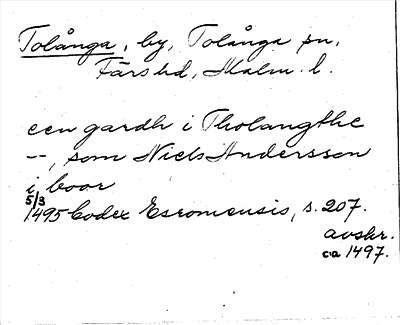 Tolånga, by, Tolånga sn,
Färs hd, Malm. l.
een gardh i Tholangthe
--, som Niels Anderssen
i boor
5/3
1495 Codex Esromensis, s. 207.
avskr.
ca 1497.